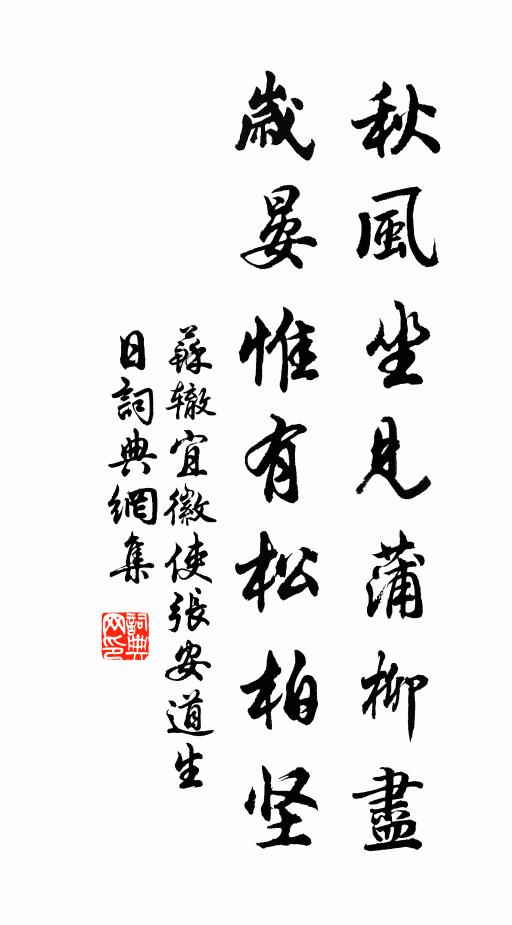 秋風坐見蒲柳盡
歲晏惟有松柏坚
蘇辙宣徽使張安道生
日詞典網集
詞典网印